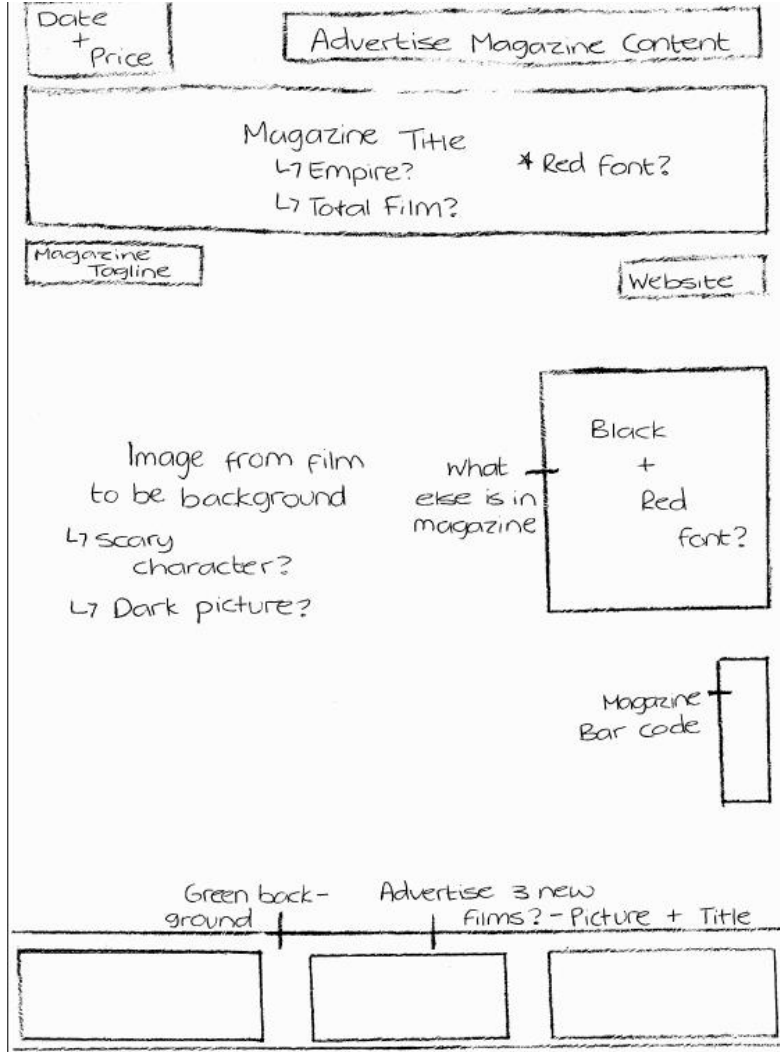 Date
+
Price
Advertise Magazine Content
Magazine Title
↳ Empire?
* Red font?
↳ Total Film?
Magazine
Tagline
Website
Image from film
to be background
↳ scary
character?
↳ Dark picture?
What
else is in
magazine
Black
+
Red
font?
Magazine
Bar code
Green back-
ground
Advertise 3 new
films? - Picture + Title